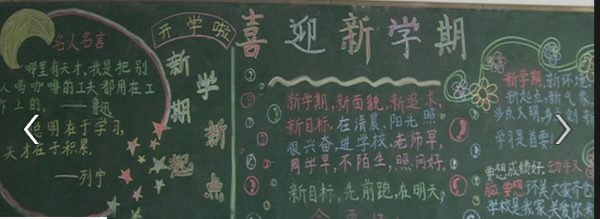 开学啦
喜迎新学期
名人名言
哪里有天才,我是把别
人喝咖啡的工夫都用在工
作上的。——鲁迅
聪明在于学习,
天才在于积累。
——列宁
新学期
新起点
新学期,新面貌,新追求,
新目标。在清晨,阳光照
很兴奋,进学校,老师早,
同学早,不陌生,照问好。
新目标,先前跑,在明天,
新学期,新环境
新起点,新气象
学习是首要!
要想成绩好,动手又